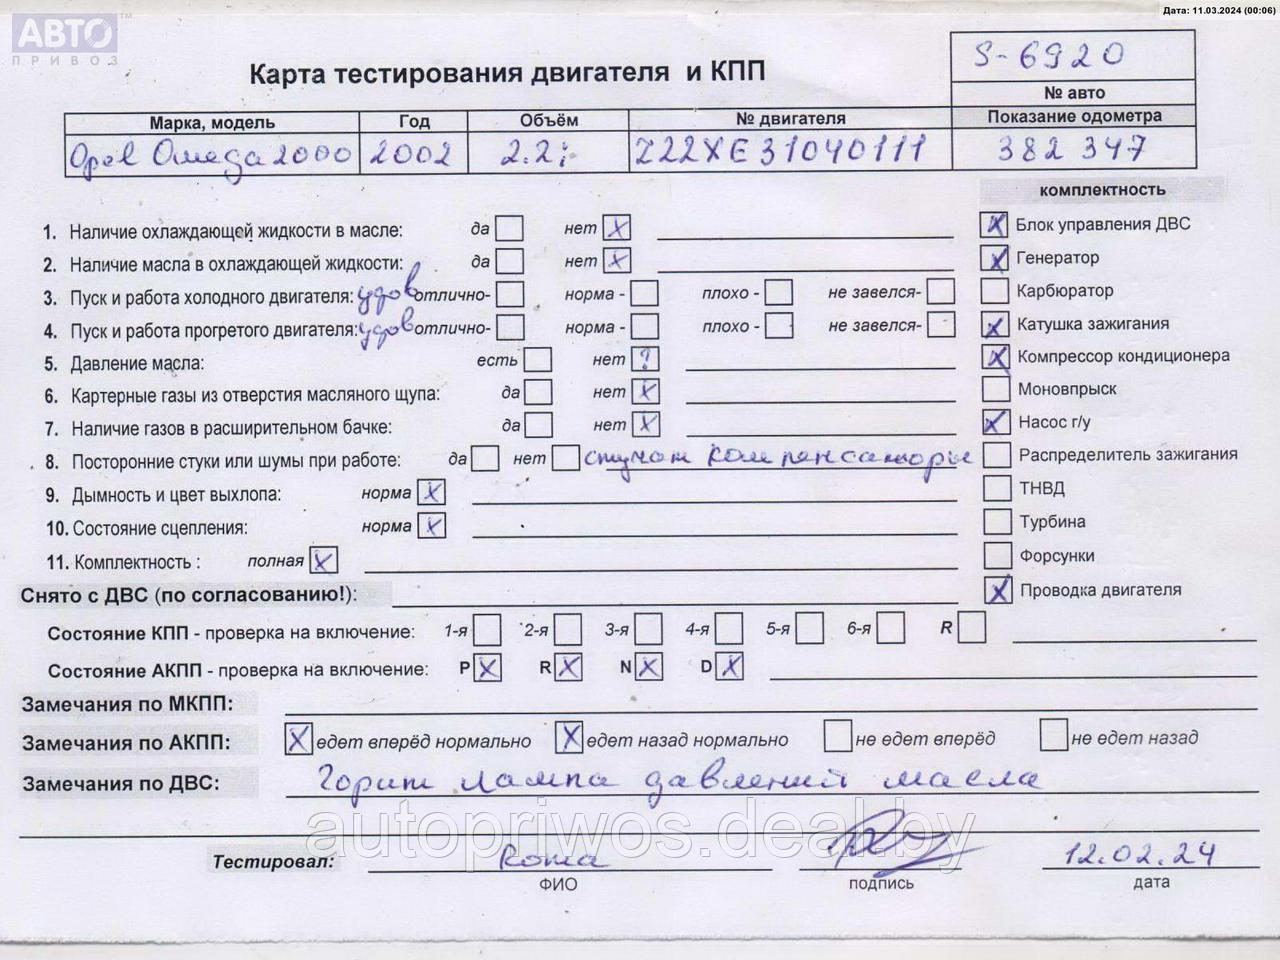 Дата: 11.03.2024 (00:06)
АВТО
ПРИВОЗ
Карта тестирования двигателя и КПП
S-6920
№ авто
Марка, модель Год Объём № двигателя Показание одометра
Opel Omega 2000 2002 2.2i Z22XE31040111 382 347
комплектность
1. Наличие охлаждающей жидкости в масле: да нет X
2. Наличие масла в охлаждающей жидкости: да нет X
3. Пуск и работа холодного двигателя: удов отлично- норма - плохо - не завелся-
4. Пуск и работа прогретого двигателя: удов отлично- норма - плохо - не завелся-
5. Давление масла: есть нет ?
6. Картерные газы из отверстия масляного щупа: да нет X
7. Наличие газов в расширительном бачке: да нет X
8. Посторонние стуки или шумы при работе: да нет стучат компенсаторы
9. Дымность и цвет выхлопа: норма X
10. Состояние сцепления: норма X
11. Комплектность : полная X
X Блок управления ДВС
X Генератор
Карбюратор
X Катушка зажигания
X Компрессор кондиционера
Моновпрыск
X Насос г/у
Распределитель зажигания
ТНВД
Турбина
Форсунки
X Проводка двигателя
Снято с ДВС (по согласованию!):
Состояние КПП - проверка на включение: 1-я 2-я 3-я 4-я 5-я 6-я R
Состояние АКПП - проверка на включение: P X R X N X D X
Замечания по МКПП:
Замечания по АКПП: X едет вперёд нормально X едет назад нормально не едет вперёд не едет назад
Замечания по ДВС: Горит лампа давлений масла
autopriwos.deal.by
Тестировал: 12.02.24
ФИО подпись дата